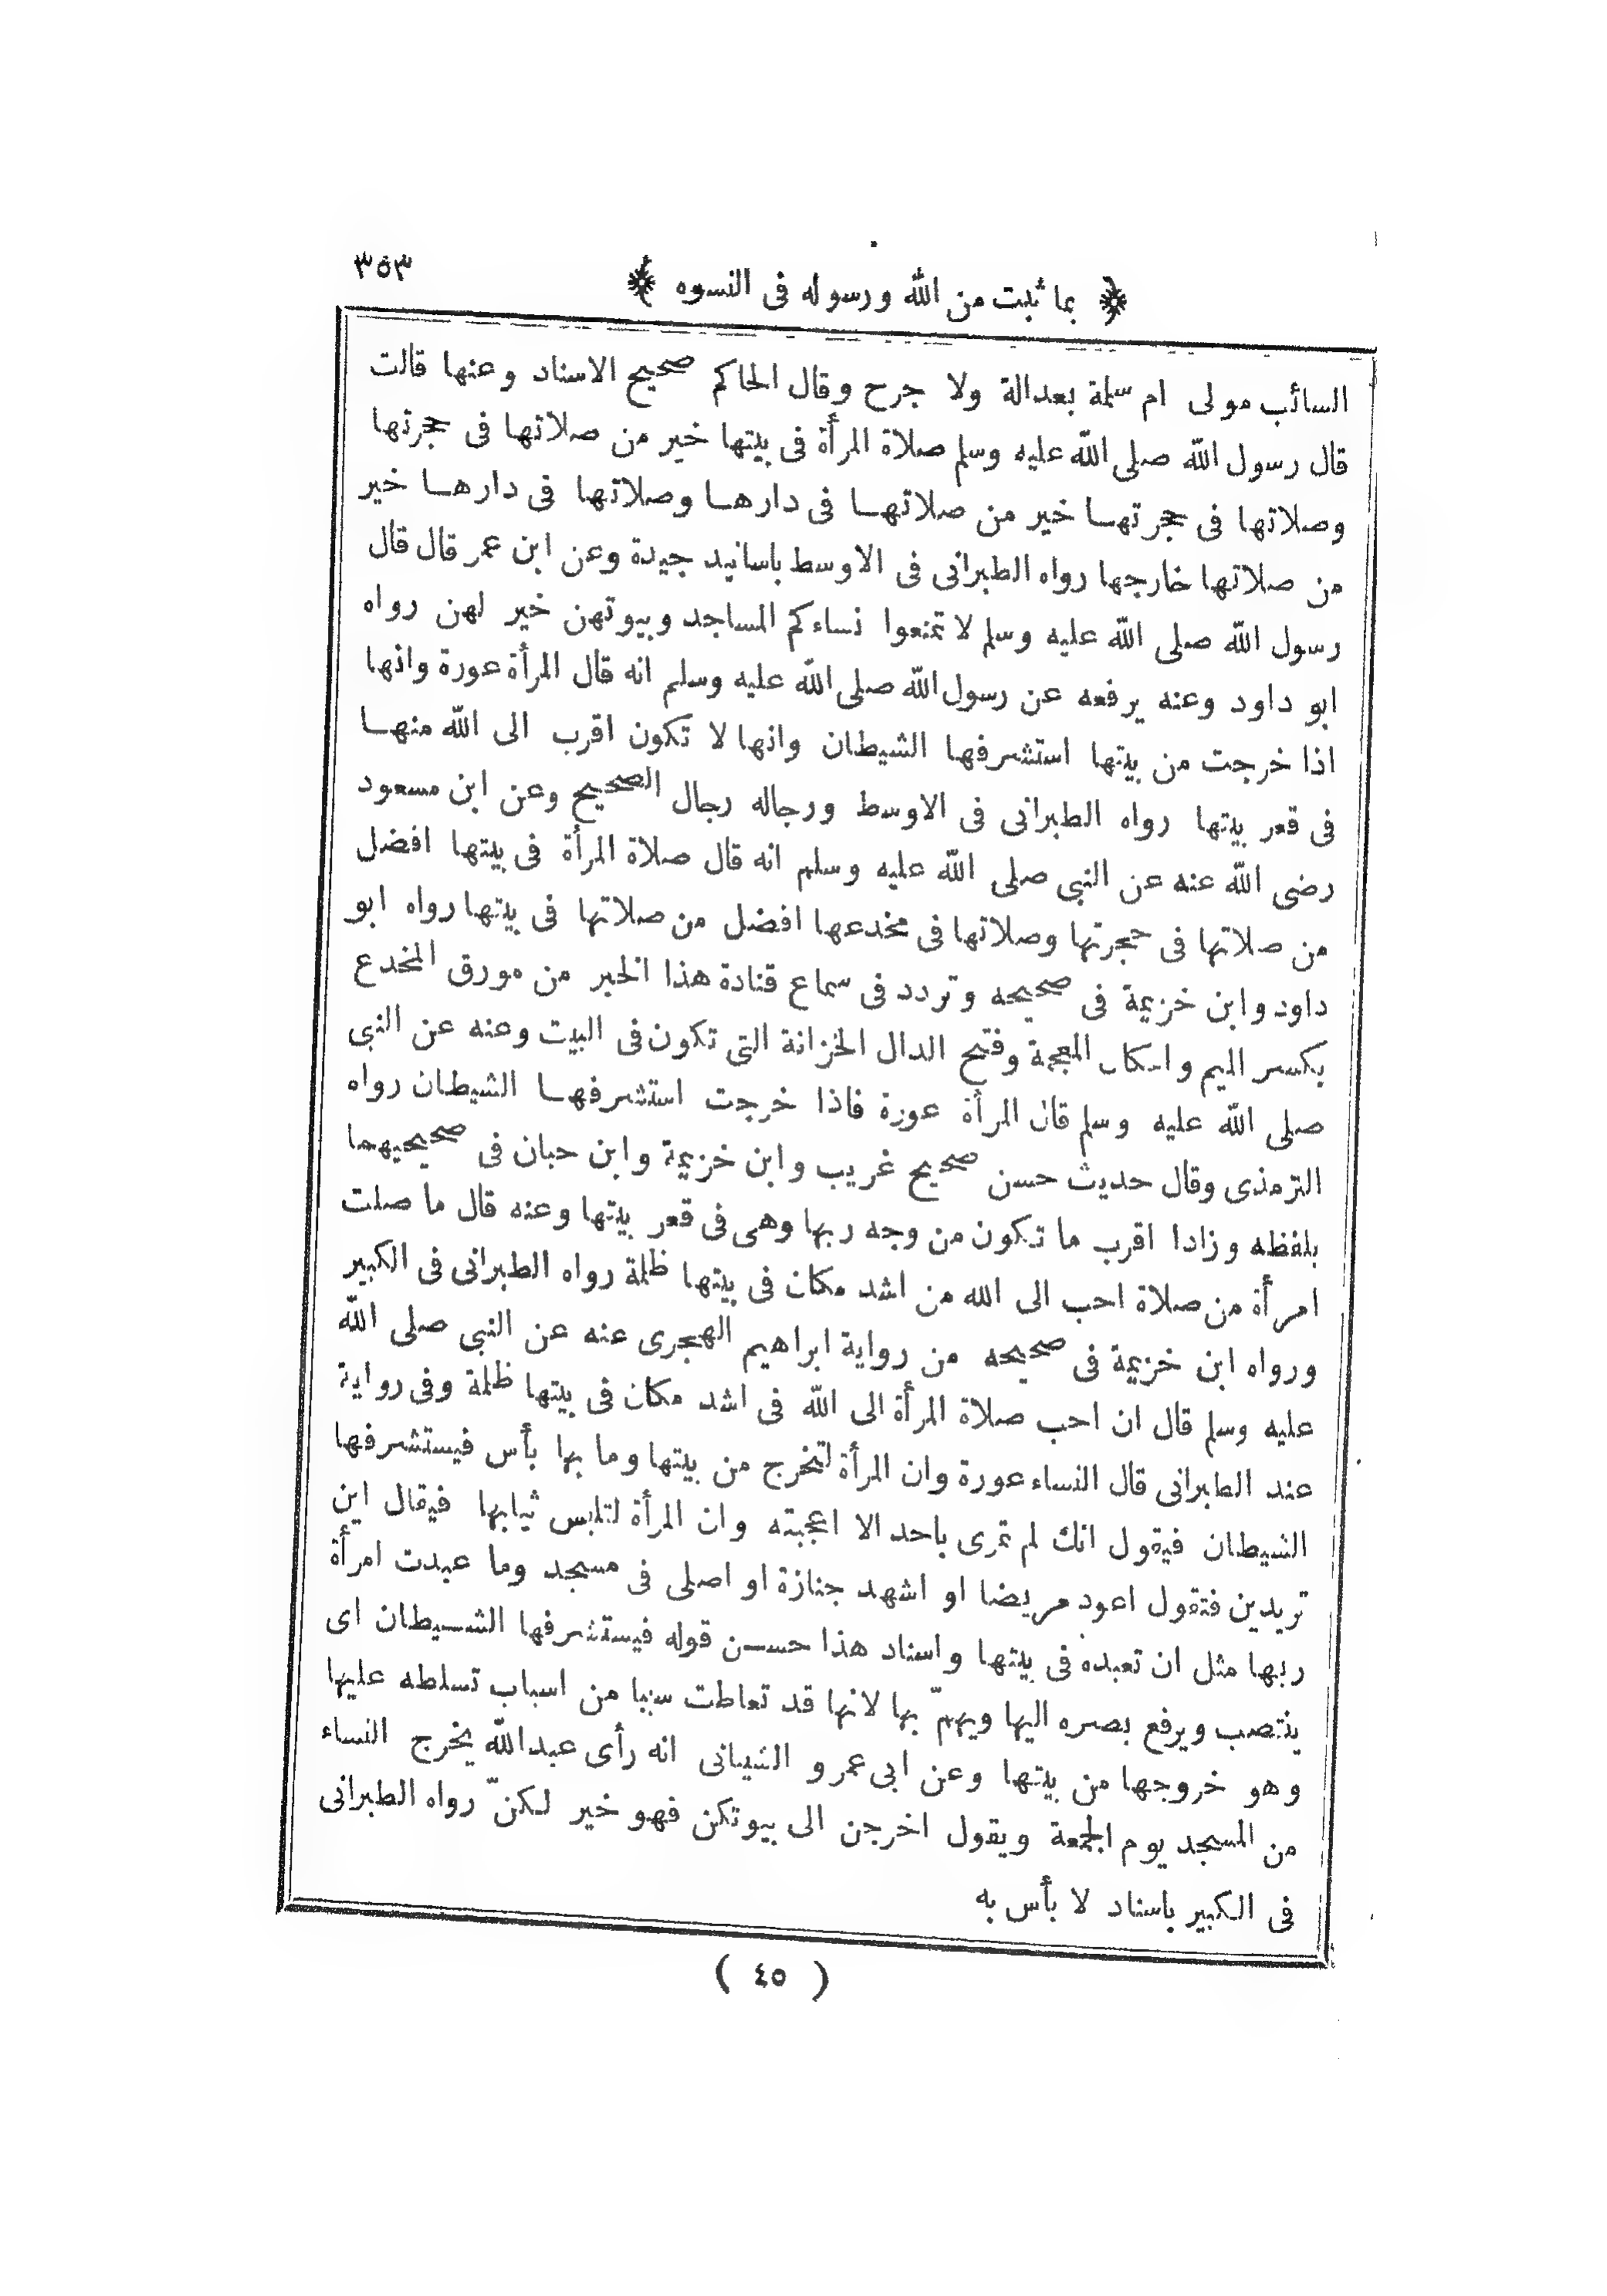 ﴿ بما ثبت من الله ورسوله فى النسوه ﴾ ٣٥٣
السائب مولى ام سلمة بعدالة ولا جرح وقال الحاكم صحيح الاسناد وعنها قالت
قال رسول الله صلى الله عليه وسلم صلاة المرأة فى بيتها خير من صلاتها فى حجرتها
وصلاتها فى حجرتها خير من صلاتها فى دارها وصلاتها فى دارها خير
من صلاتها خارجها رواه الطبرانى فى الاوسط باسانيد جيدة وعن ابن عمر قال قال
رسول الله صلى الله عليه وسلم لا تمنعوا نساءكم المساجد وبيوتهن خير لهن رواه
ابو داود وعنه يرفعه عن رسول الله صلى الله عليه وسلم انه قال المرأة عورة وانها
اذا خرجت من بيتها استشرفها الشيطان وانها لا تكون اقرب الى الله منها
فى قعر بيتها رواه الطبرانى فى الاوسط ورجاله رجال الصحيح وعن ابن مسعود
رضى الله عنه عن النبى صلى الله عليه وسلم انه قال صلاة المرأة فى بيتها افضل
من صلاتها فى حجرتها وصلاتها فى مخدعها افضل من صلاتها فى بيتها رواه ابو
داود وابن خزيمة فى صحيحه وتردد فى سماع قتادة هذا الخبر من مورق المخدع
بكسر الميم واسكان المعجمة وفتح الدال الخزانة التى تكون فى البيت وعنه عن النبى
صلى الله عليه وسلم قال المرأة عورة فاذا خرجت استشرفها الشيطان رواه
الترمذى وقال حديث حسن صحيح غريب وابن خزيمة وابن حبان فى صحيحيهما
بلفظه وزادا اقرب ما تكون من وجه ربها وهى فى قعر بيتها وعنه قال ما صلت
امرأة من صلاة احب الى الله من اشد مكان فى بيتها ظلمة رواه الطبرانى فى الكبير
ورواه ابن خزيمة فى صحيحه من رواية ابراهيم الهجرى عنه عن النبى صلى الله
عليه وسلم قال ان احب صلاة المرأة الى الله فى اشد مكان فى بيتها ظلمة وفى رواية
عند الطبرانى قال النساء عورة وان المرأة لتخرج من بيتها وما بها بأس فيستشرفها
الشيطان فيقول انك لم تمرى باحد الا اعجبته وان المرأة لتلبس ثيابها فيقال اين
تريدين فتقول اعود مريضا او اشهد جنازة او اصلى فى مسجد وما عبدت امرأة
ربها مثل ان تعبده فى بيتها واسناد هذا حسن قوله فيستشرفها الشيطان اى
ينتصب ويرفع بصره اليها ويهمّ بها لانها قد تعاطت سببا من اسباب تسلطه عليها
وهو خروجها من بيتها وعن ابى عمرو الشيبانى انه رأى عبدالله يخرج النساء
من المسجد يوم الجمعة ويقول اخرجن الى بيوتكن فهو خير لكنّ رواه الطبرانى
فى الكبير باسناد لا بأس به
( ٤٥ )